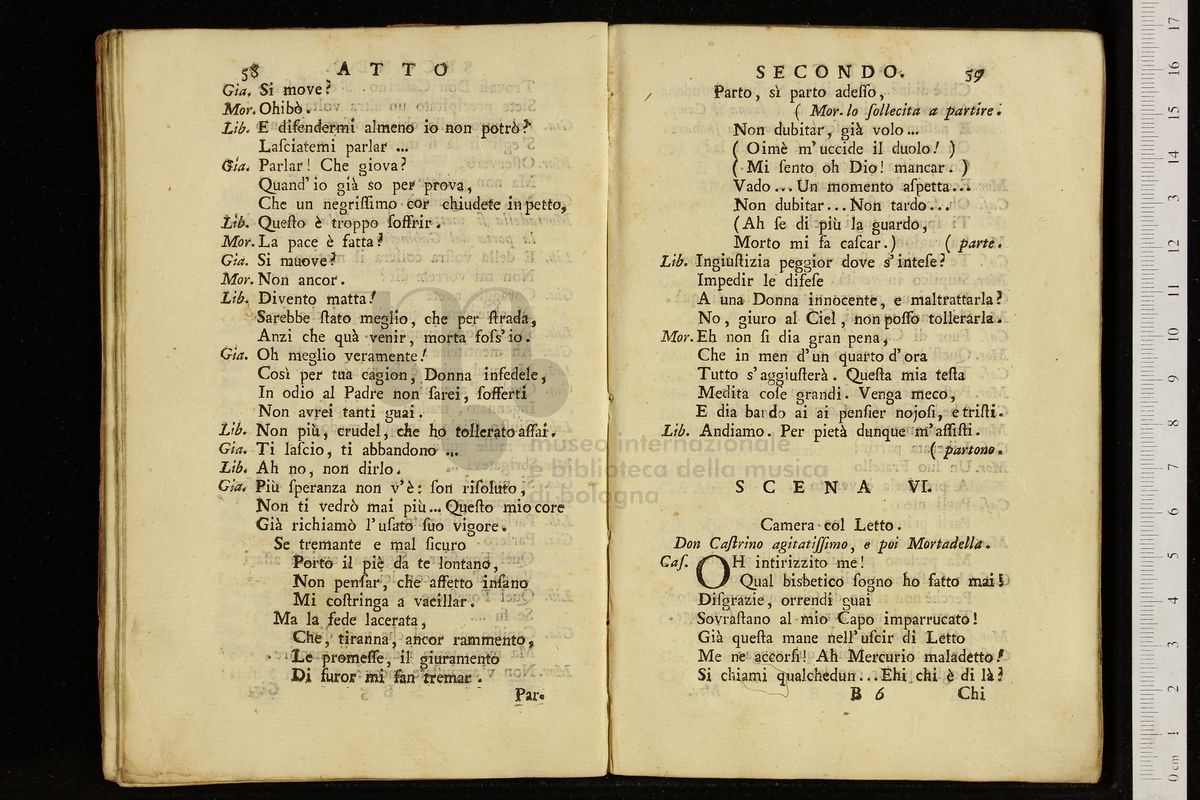 58 ATTO
Gia. Si move?
Mor. Ohibò.
Lib. E difendermi almeno io non potrò?
Laſciatemi parlar ...
Gia. Parlar! Che giova?
Quand' io già so per prova,
Che un negriſſimo cor chiudete in petto,
Lib. Queſto è troppo ſoffrir.
Mor. La pace è fatta?
Gia. Si muove?
Mor. Non ancor.
Lib. Divento matta!
Sarebbe ſtato meglio, che per ſtrada,
Anzi che quà venir, morta foſs' io.
Gia. Oh meglio veramente!
Così per tua cagion, Donna infedele,
In odio al Padre non ſarei, ſofferti
Non avrei tanti guai.
Lib. Non più, crudel, che ho tollerato aſſai.
Gia. Ti laſcio, ti abbandono ...
Lib. Ah no, non dirlo.
Gia. Più ſperanza non v'è: ſon riſoluto,
Non ti vedrò mai più... Queſto mio core
Già richiamò l'uſato ſuo vigore.
Se tremante e mal ſicuro
Porto il piè da te lontano,
Non penſar, che affetto inſano
Mi coſtringa a vacillar.
Ma la fede lacerata,
Che, tiranna, ancor rammento,
Le promeſſe, il giuramento
Di furor mi fan tremar.
Par.
SECONDO. 59
Parto, sì parto adeſſo,
( Mor. lo ſollecita a partire.
Non dubitar, già volo...
( Oimè m'uccide il duolo! )
( Mi ſento oh Dio! mancar. )
Vado... Un momento aſpetta...
Non dubitar... Non tardo...
(Ah ſe di più la guardo,
Morto mi fa caſcar.) ( parte.
Lib. Ingiuſtizia peggior dove s'inteſe?
Impedir le difeſe
A una Donna innocente, e maltrattarla?
No, giuro al Ciel, non poſſo tollerarla.
Mor. Eh non ſi dia gran pena,
Che in men d'un quarto d'ora
Tutto s'aggiuſterà. Queſta mia teſta
Medita coſe grandi. Venga meco,
E dia bando ai ai penſier nojoſi, e triſti.
Lib. Andiamo. Per pietà dunque m'aſſiſti.
( partono.
SCENA VI.
Camera col Letto.
Don Caſtrino agitatiſſimo, e poi Mortadella.
Caſ. OH intirizzito me!
Qual bisbetico ſogno ho fatto mai!
Diſgrazie, orrendi guai
Sovraſtano al mio Capo imparrucato!
Già queſta mane nell'uſcir di Letto
Me ne accorſi! Ah Mercurio maladetto!
Si chiami qualchedun... Ehi chi è di là?
B 6 Chi
museo internazionale
e biblioteca della musica
di bologna
0 cm 1 2 3 4 5 6 7 8 9 10 11 12 3 14 15 16 17